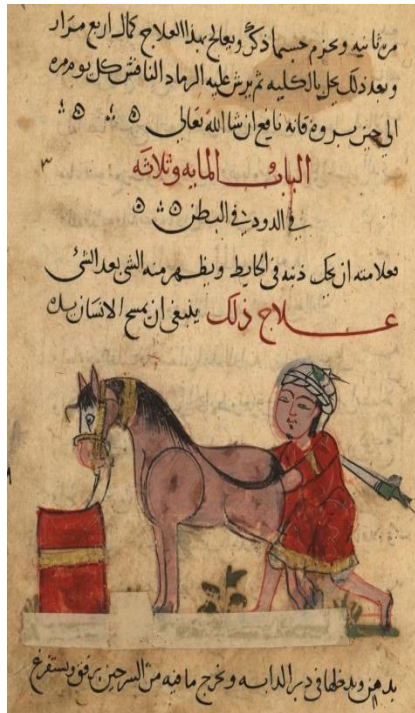 مرة ثانيه ويحزم حسبما ذكر ويعالج بهذا العلاج كماله اربع مرار
وبعد ذلك يحل بالكليه ثم يرش عليه الرماد الناقش كل يوم مره
الي حين بروه فانه نافع ان شا الله تعالي
الباب المايه وثلاثه
في الدود في البطن
فعلامته ان يحك ذنبه في الحايط ويظهر منه الشي بعد الشئ
علاج ذلك ينبغي ان يمسح الانسان يده
بدهن ويدخلها في دبر الدابه ويخرج ما فيه من السرجين برفق ويستفرغ